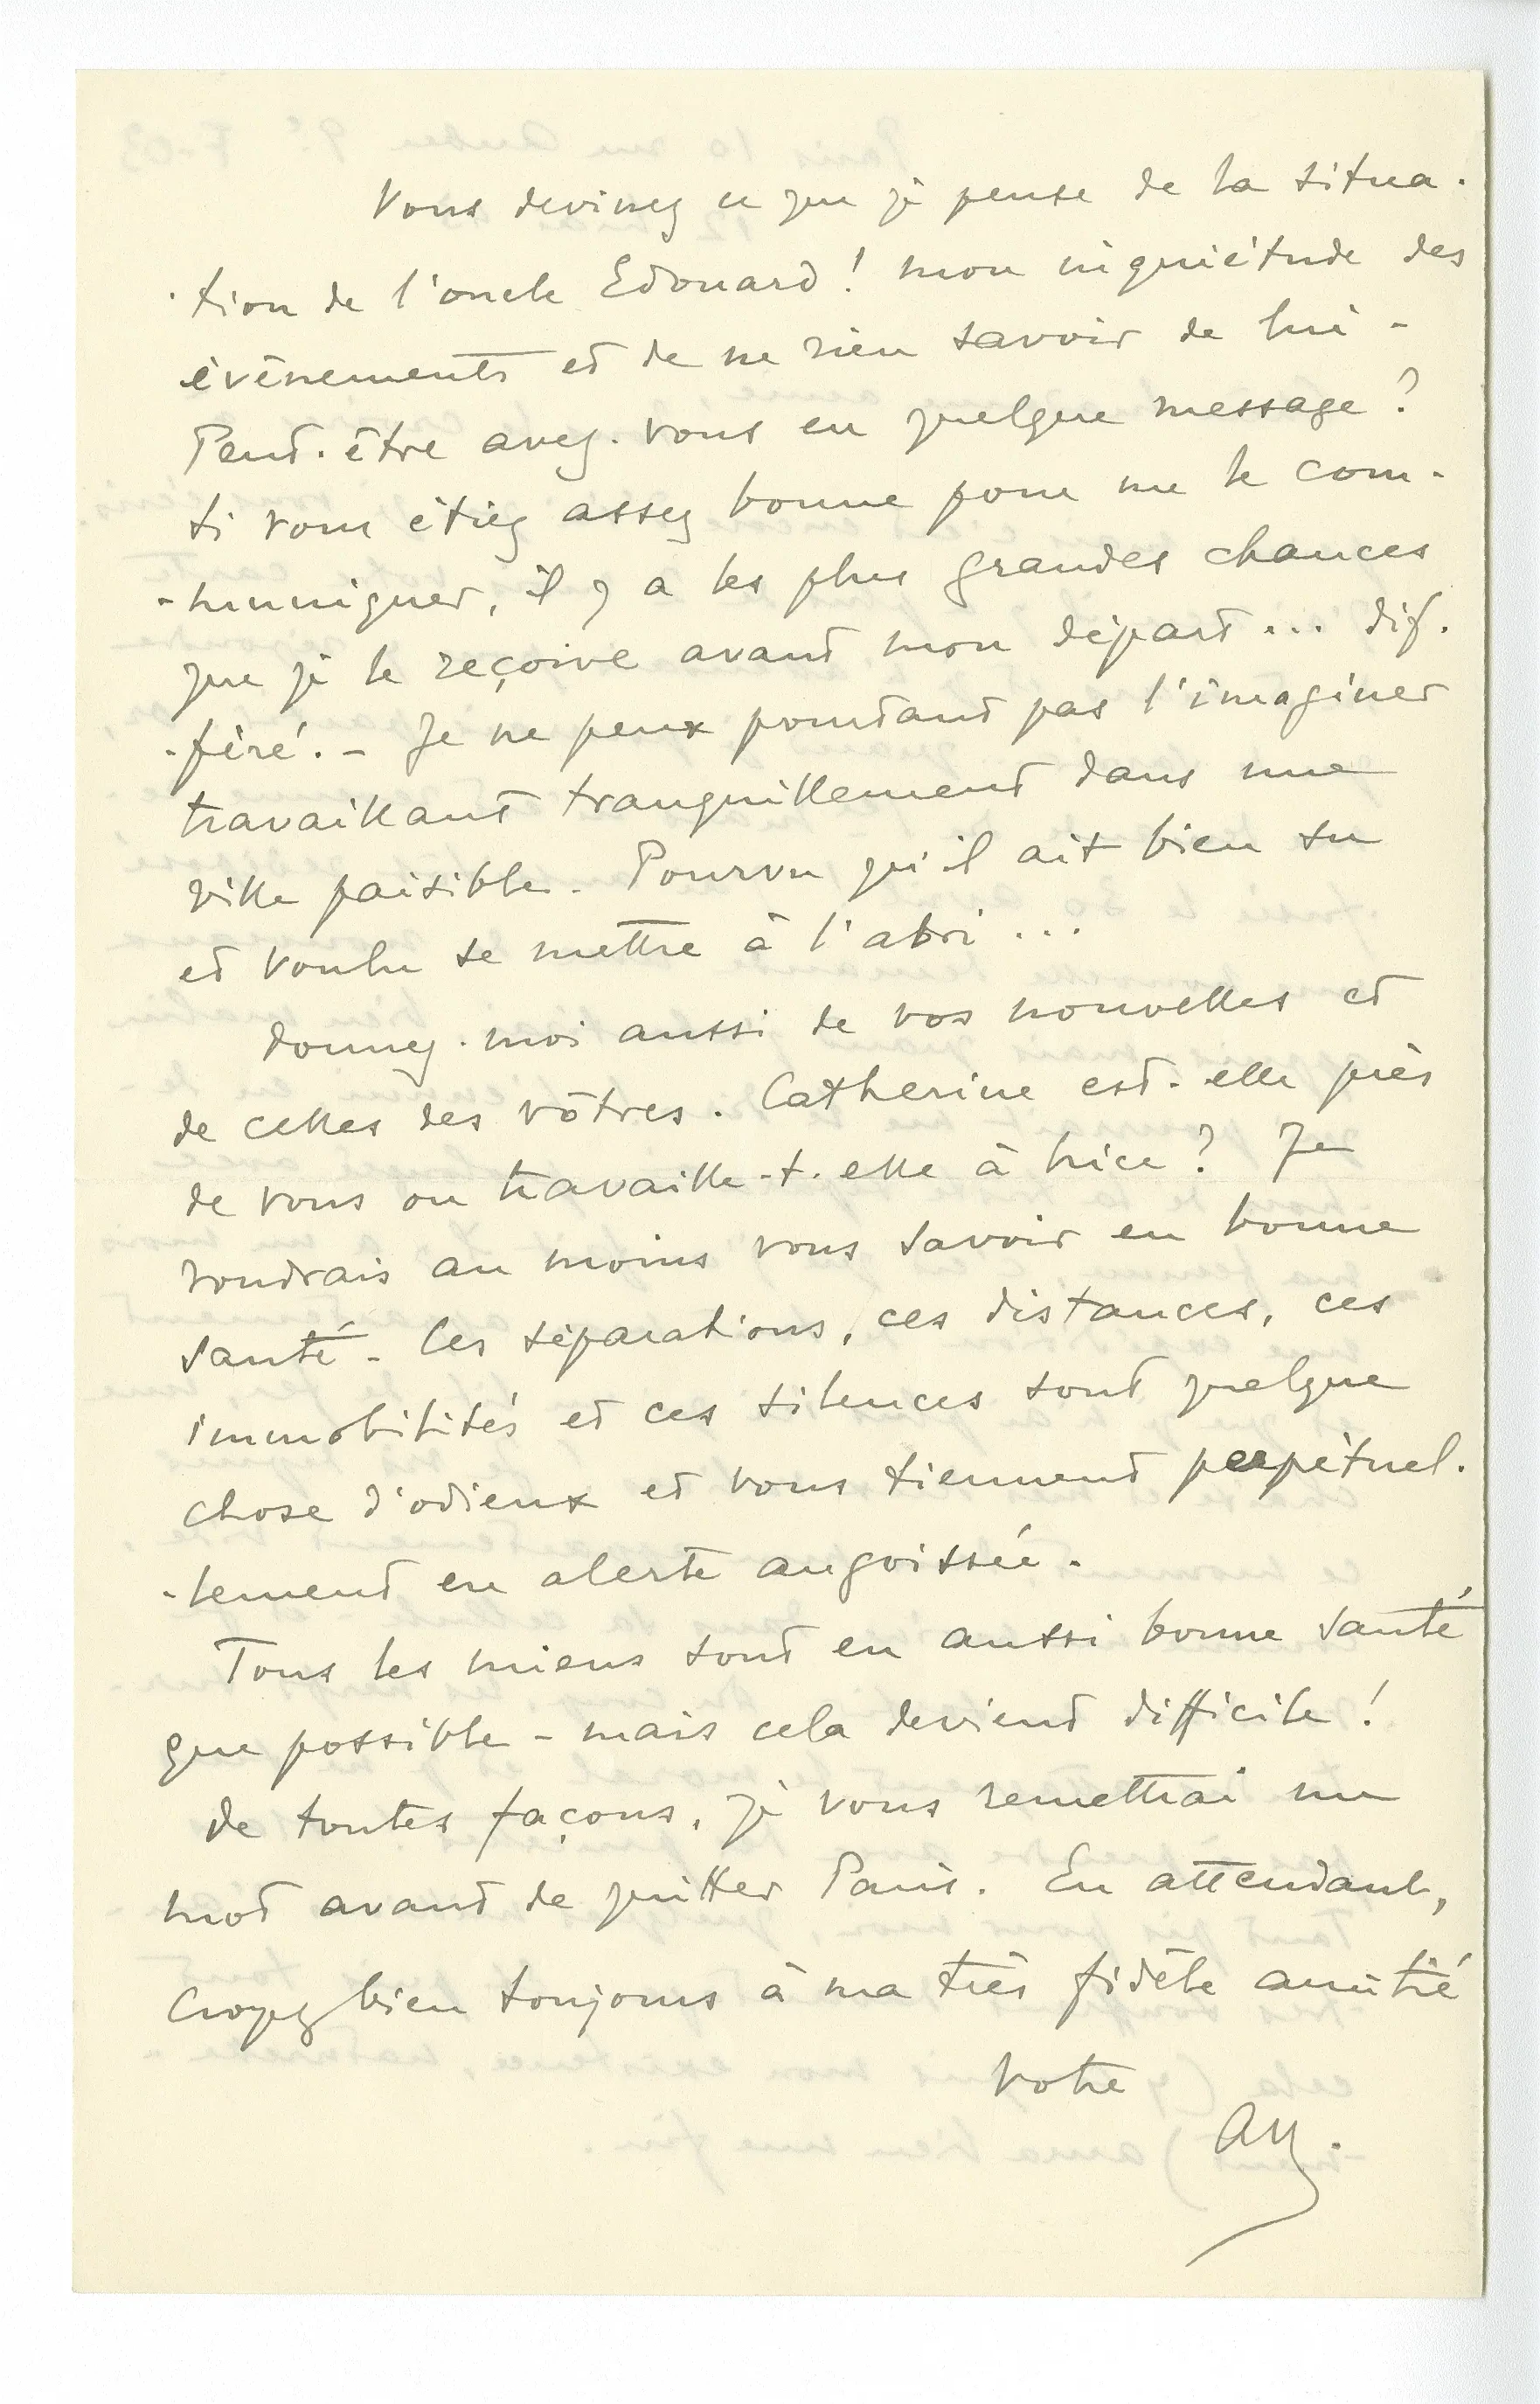 Vous devinez ce que je pense de la situa-
-tion de l'oncle Edouard ! mon inquiétude des
évènements et de ne rien savoir de lui -
Peut-être avez-vous eu quelque message ?
si vous étiez assez bonne pour me le com-
-muniquer, il y a les plus grandes chances
que je le reçoive avant mon départ... dif-
-féré. - Je ne peux pourtant pas l'imaginer
travaillant tranquillement dans une
ville paisible. Pourvu qu'il ait bien su
et voulu se mettre à l'abri ...
Donnez-moi aussi de vos nouvelles et
de celles des vôtres. Catherine est-elle près
de vous ou travaille-t-elle à Nice ? Je
voudrais au moins vous savoir en bonne
santé - Ces séparations, ces distances, ces
immobilités et ces silences sont quelque
chose d'odieux et vous tiennent perpétuel-
-lement en alerte angoissée.
Tous les miens sont en aussi bonne santé
que possible - mais cela devient difficile !
de toutes façons, je vous remettrai un
mot avant de quitter Paris. En attendant,
croyez bien toujours à ma très fidèle amitié
votre